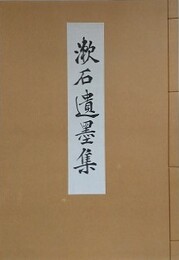 漱石遺墨集